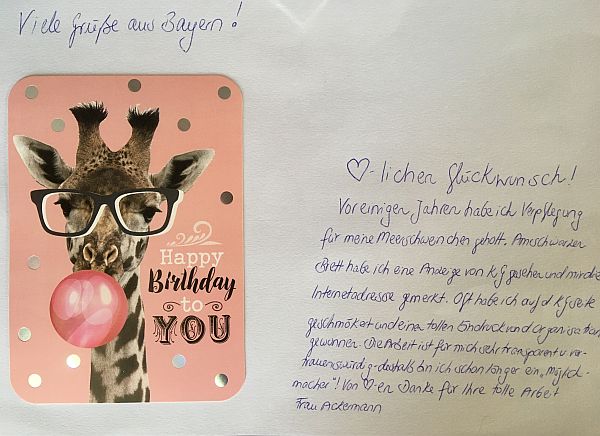 Viele Grüße aus Bayern!
Happy
Birthday
to
YOU
♡-lichen Glückwunsch!
Vor einigen Jahren habe ich Verpflegung
für meine Meerschweinchen geholt. Am schwarzen
Brett habe ich eine Anzeige von KG gesehen und mir die
Internetadresse gemerkt. Oft habe ich auf d KG seite
geschmökert und einen tollen Eindruck und Organisation
gewonnen. Die Arbeit ist für mich sehr transparent u. ver-
trauenswürdig - deshalb bin ich schon länger ein „Möglich-
macher"! Von ♡-en Danke für Ihre tolle Arbeit
Frau Ackermann